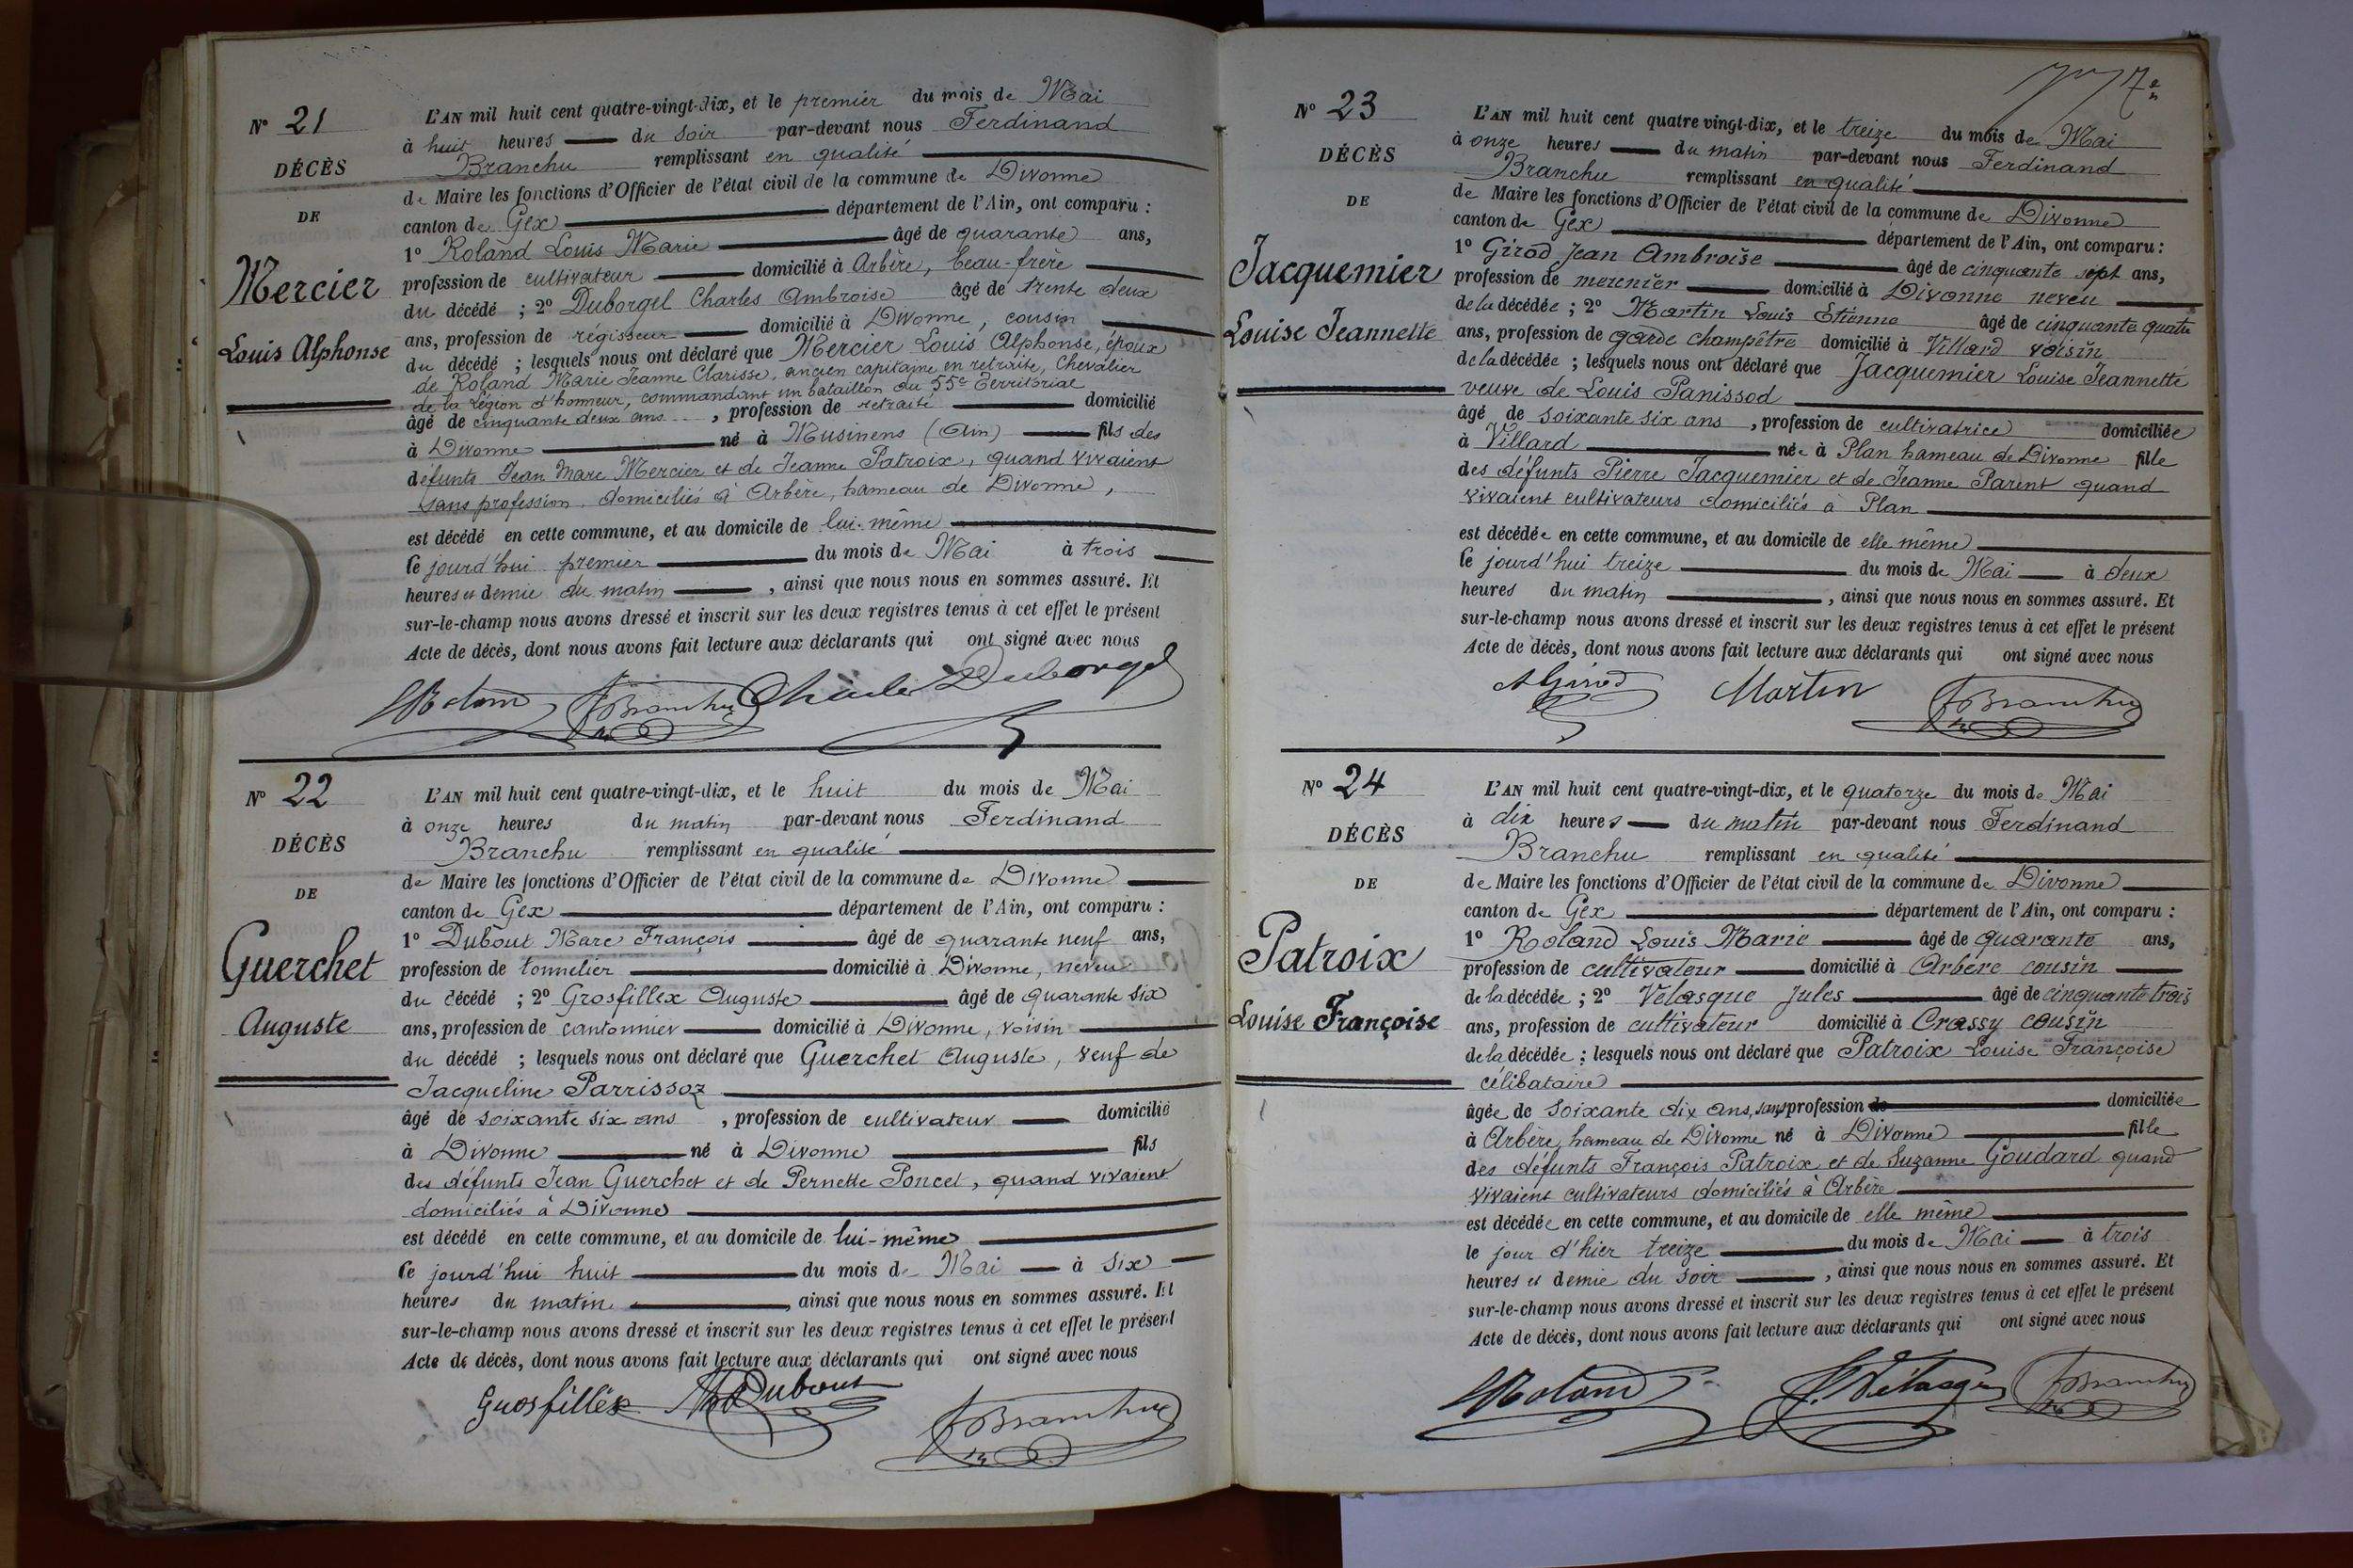 N° 21
DÉCÈS
DE
Mercier
Louis Alphonse
L'AN mil huit cent quatre-vingt-dix, et le premier du mois de Mai
à huit heures du soir par-devant nous Ferdinand
Branchu remplissant en qualité
de Maire les fonctions d'Officier de l'état civil de la commune de Divonne
canton de Gex département de l'Ain, ont comparu :
1° Roland Louis Marie âgé de quarante ans,
profession de cultivateur domicilié à Arbère, beau-frère
du décédé ; 2° Duborgel Charles Ambroise âgé de trente deux
ans, profession de régisseur domicilié à Divonne, cousin
du décédé ; lesquels nous ont déclaré que Mercier Louis Alphonse, époux
de Roland Marie Jeanne Clarisse, ancien capitaine en retraite, Chevalier
de la Légion d'honneur, commandant un bataillon du 55e Territorial
âgé de cinquante deux ans, profession de retraité domicilié
à Divonne né à Musinens (Ain) fils des
défunts Jean Marc Mercier et de Jeanne Patroix, quand vivaient
sans profession, domiciliés à Arbère, hameau de Divonne,
est décédé en cette commune, et au domicile de lui-même
ce jourd'hui premier du mois de Mai à trois
heures et demie du matin, ainsi que nous nous en sommes assuré. Et
sur-le-champ nous avons dressé et inscrit sur les deux registres tenus à cet effet le présent
Acte de décès, dont nous avons fait lecture aux déclarants qui ont signé avec nous
LRoland FBranchu Charles Duborgel
N° 22
DÉCÈS
DE
Guerchet
Auguste
L'AN mil huit cent quatre-vingt-dix, et le huit du mois de Mai
à onze heures du matin par-devant nous Ferdinand
Branchu remplissant en qualité
de Maire les fonctions d'Officier de l'état civil de la commune de Divonne
canton de Gex département de l'Ain, ont comparu :
1° Dubout Marc François âgé de quarante neuf ans,
profession de tonnelier domicilié à Divonne, neveu
du décédé ; 2° Grosfillex Auguste âgé de quarante six
ans, profession de cantonnier domicilié à Divonne, voisin
du décédé ; lesquels nous ont déclaré que Guerchet Auguste, veuf de
Jacqueline Parrissoz
âgé de soixante six ans, profession de cultivateur domicilié
à Divonne né à Divonne fils
des défunts Jean Guerchet et de Pernette Poncet, quand vivaient
domiciliés à Divonne
est décédé en cette commune, et au domicile de lui-même
ce jourd'hui huit du mois de Mai à six
heures du matin, ainsi que nous nous en sommes assuré. Et
sur-le-champ nous avons dressé et inscrit sur les deux registres tenus à cet effet le présent
Acte de décès, dont nous avons fait lecture aux déclarants qui ont signé avec nous
Grosfillex Dubout FBranchu
N° 23
DÉCÈS
DE
Jacquemier
Louise Jeannette
L'AN mil huit cent quatre vingt-dix, et le treize du mois de Mai
à onze heures du matin par-devant nous Ferdinand
Branchu remplissant en qualité
de Maire les fonctions d'Officier de l'état civil de la commune de Divonne
canton de Gex département de l'Ain, ont comparu :
1° Girod Jean Ambroise âgé de cinquante sept ans,
profession de menuisier domicilié à Divonne neveu
de la décédée ; 2° Martin Louis Etienne âgé de cinquante quatre
ans, profession de garde champêtre domicilié à Villard voisin
de la décédée ; lesquels nous ont déclaré que Jacquemier Louise Jeannette
veuve de Louis Panissod
âgé de soixante six ans, profession de cultivatrice domiciliée
à Villard née à Plan hameau de Divonne fille
des défunts Pierre Jacquemier et de Jeanne Parent quand
vivaient cultivateurs domiciliés à Plan
est décédée en cette commune, et au domicile de elle même
ce jourd'hui treize du mois de Mai à deux
heures du matin, ainsi que nous nous en sommes assuré. Et
sur-le-champ nous avons dressé et inscrit sur les deux registres tenus à cet effet le présent
Acte de décès, dont nous avons fait lecture aux déclarants qui ont signé avec nous
AGirod Martin FBranchu
N° 24
DÉCÈS
DE
Patroix
Louise Françoise
L'AN mil huit cent quatre-vingt-dix, et le quatorze du mois de Mai
à dix heures du matin par-devant nous Ferdinand
Branchu remplissant en qualité
de Maire les fonctions d'Officier de l'état civil de la commune de Divonne
canton de Gex département de l'Ain, ont comparu :
1° Roland Louis Marie âgé de quarante ans,
profession de cultivateur domicilié à Arbère cousin
de la décédée ; 2° Velasque Jules âgé de cinquante trois
ans, profession de cultivateur domicilié à Crassy cousin
de la décédée ; lesquels nous ont déclaré que Patroix Louise Françoise
célibataire
âgée de soixante dix ans, sans profession de domiciliée
à Arbère, hameau de Divonne né à Divonne fille
des défunts François Patroix et de Suzanne Goudard quand
vivaient cultivateurs domiciliés à Arbère
est décédée en cette commune, et au domicile de elle même
le jour d'hier treize du mois de Mai à trois
heures et demie du soir, ainsi que nous nous en sommes assuré. Et
sur-le-champ nous avons dressé et inscrit sur les deux registres tenus à cet effet le présent
Acte de décès, dont nous avons fait lecture aux déclarants qui ont signé avec nous
LRoland J. Vélasque FBranchu